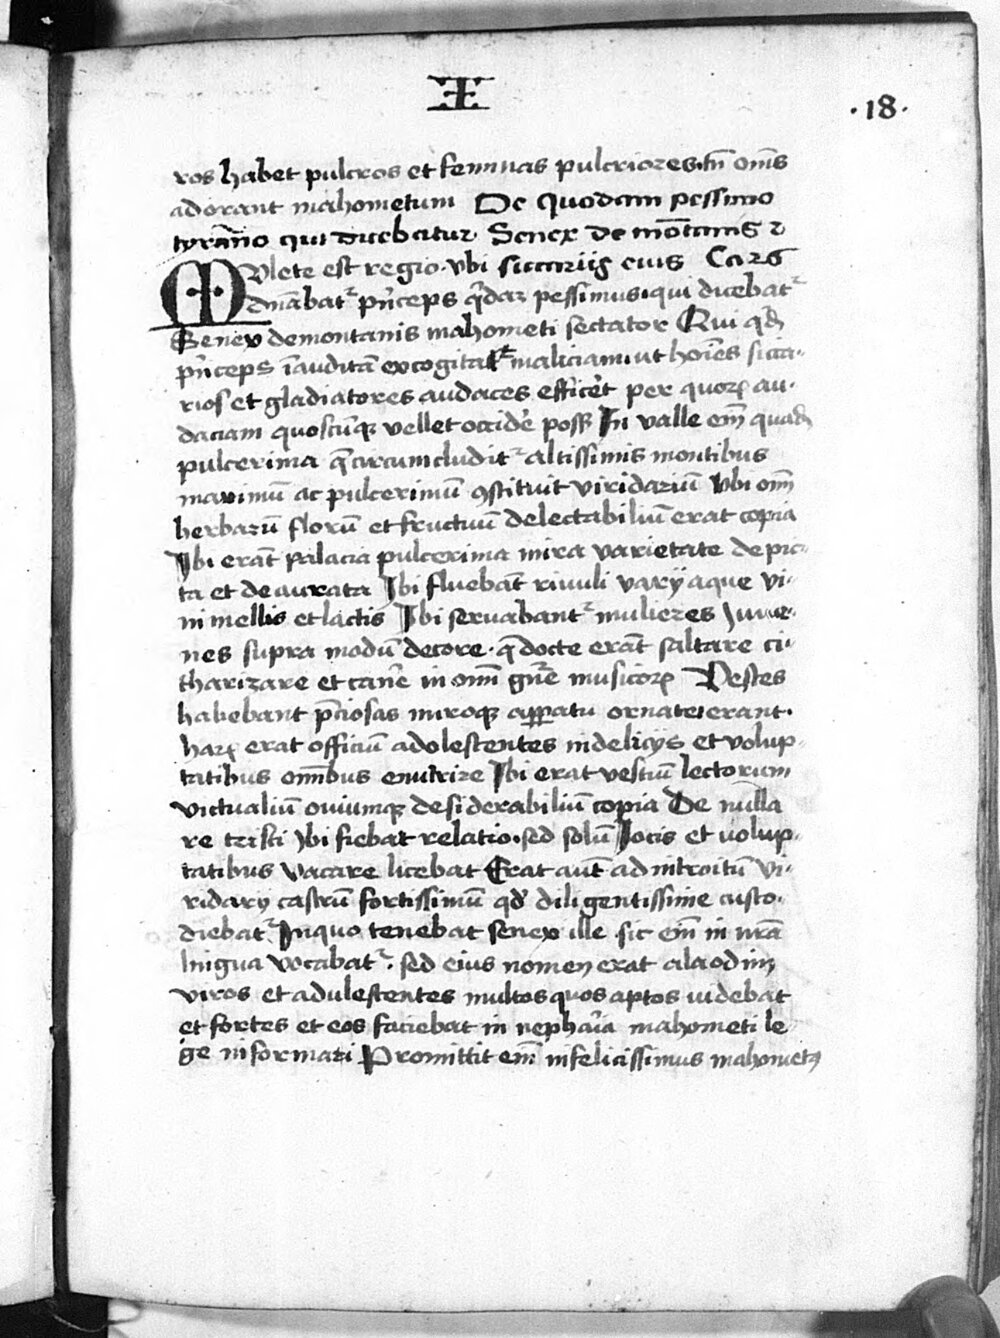 Ⅎ E
·18·
ros habet pulcros et feminas pulcriores· tn̄ om̄s
adorant mahometum De quodam pessimo
tyrāno qui dicebatur Senex de mōtanis ⁊
Mulete est regio· vbi siccariis eius Ca 28
dn̄abat᷑ pn̄ceps q̄dā pessimus· qui dicebat᷑
Senex demontanis mahometi sectator Qui qd̄
pn̄ceps īauditā excogitās maliciam· ut hoīes sica-
rios et gladiatores audaces effic̄et per quoꝝ au-
daciam quoscūqꝫ vellet occid̄e poss̄ In valle em̄ quadā
pulcerima q̄ circumcludit᷑ altissimis montibus
maximū ac pulcerimū ꝯstituit viridariū Vbi om̄
herbarū florū et fructuū delectabiliū erat copia
Ibi erāt palacia pulcerima mira varietate depic-
ta et deaurata Ibi fluebāt riuuli varij aque vi-
ni mellis et lactis Ibi seruabant᷑ mulieres Iuue-
nes supra modū decore· q̄ docte erāt saltare ci-
tharizare et can̄e in om̄i gn̄e musicoꝝ Vestes
habebant p̄ciosas miroqꝫ apparatu ornate erant·
haꝝ erat officiū adolescentes indelicijs et volup-
tatibus om̄ibus enutrire Ibi erat vestiū lectorum
victualiū oniumqꝫ desiderabiliū copia De nulla
re tristi Ibi fiebat relatio· sed solū Iocis et volup-
tatibus Vacare licebat Erat aut̄ ad introitū vi-
ridarij castrū fortissimū qd̄ diligentissime custo-
diebat᷑ Inquo tenebat senex ille sic em̄ in nr̄a
lingua vocabat᷑· sed eius nomen erat alaodim
viros et adulescentes multos quos aptos videbat
et fortes et eos faciebat in nephāia mahometi le
ge informari Promittit em̄ infelicissimus mahometꝯ